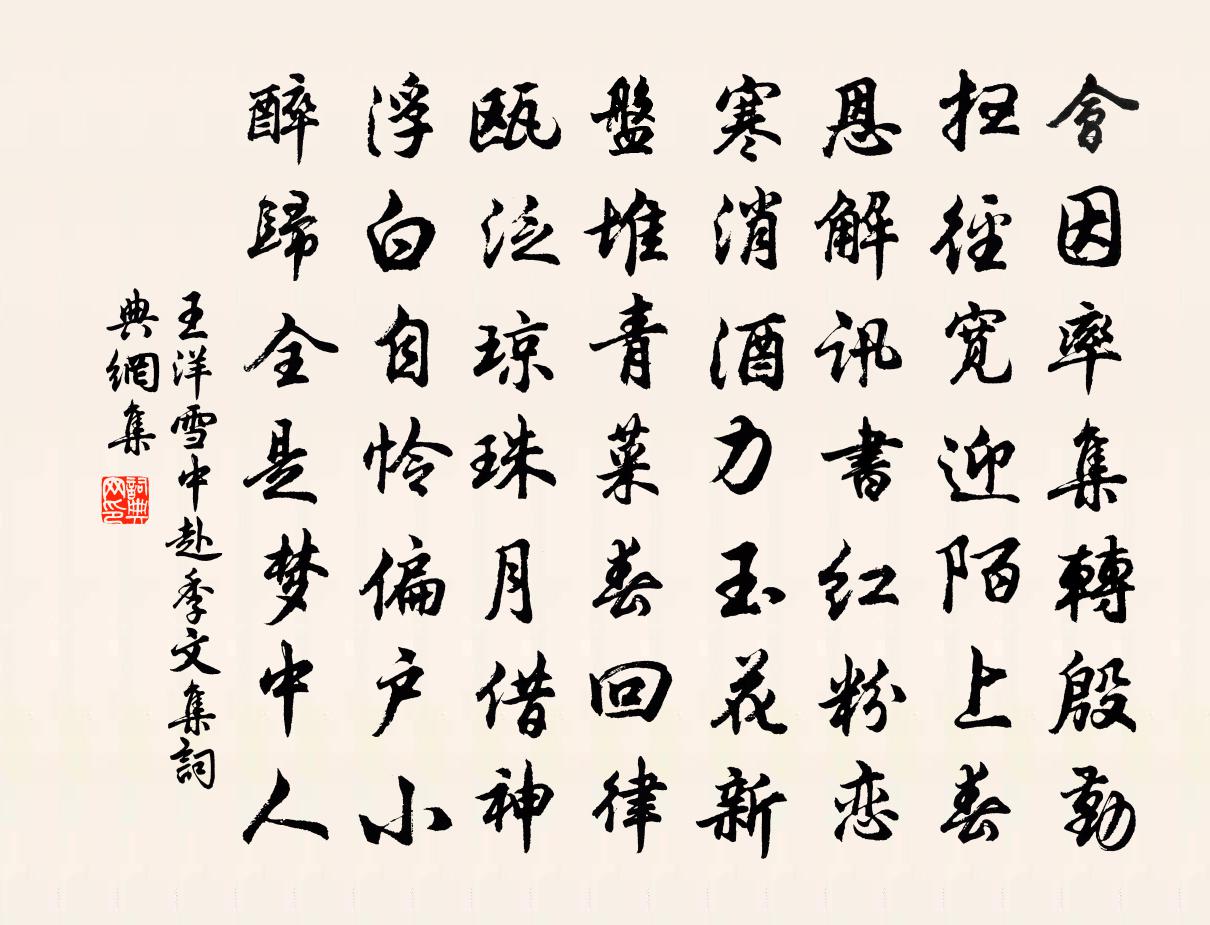 會因率集轉殷勤
扫徑宽迎陌上春
恩解讯書红粉恋
寒消酒力玉花新
盤堆青菜春回律
瓯泛琼珠月借神
浮白自怜偏户小
醉歸全是梦中人
王洋雪中赴季文集詞
典網集
詞典
网印